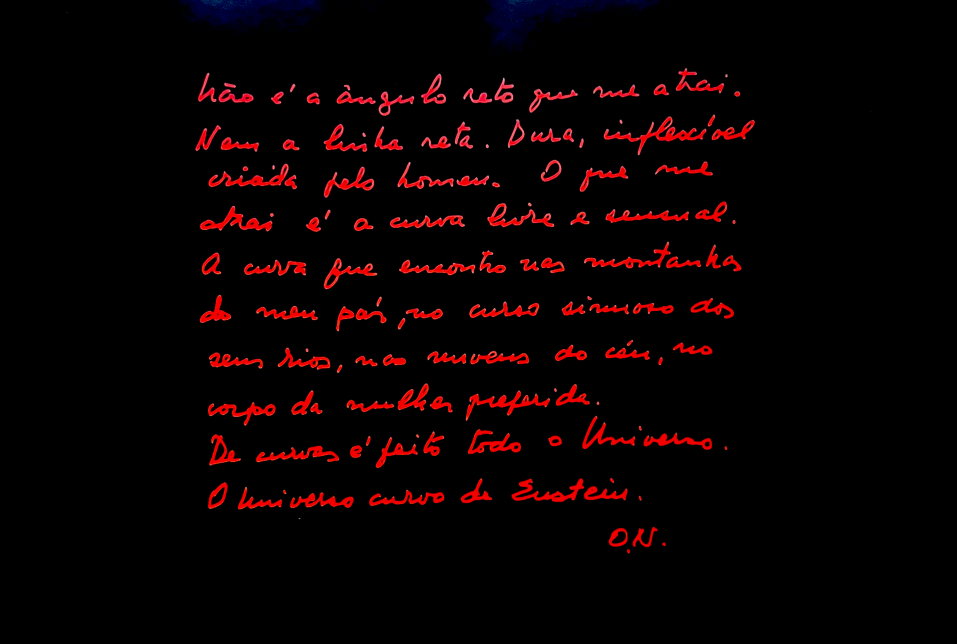 Não é o ângulo reto que me atrai.
Nem a linha reta. Dura, inflexível
criada pelo homem. O que me
atrai é a curva livre e sensual.
A curva que encontro nas montanhas
do meu país, no curso sinuoso dos
seus rios, nas nuvens do céu, no
corpo da mulher preferida.
De curvas é feito todo o Universo.
O Universo curvo de Einstein.
O.N.